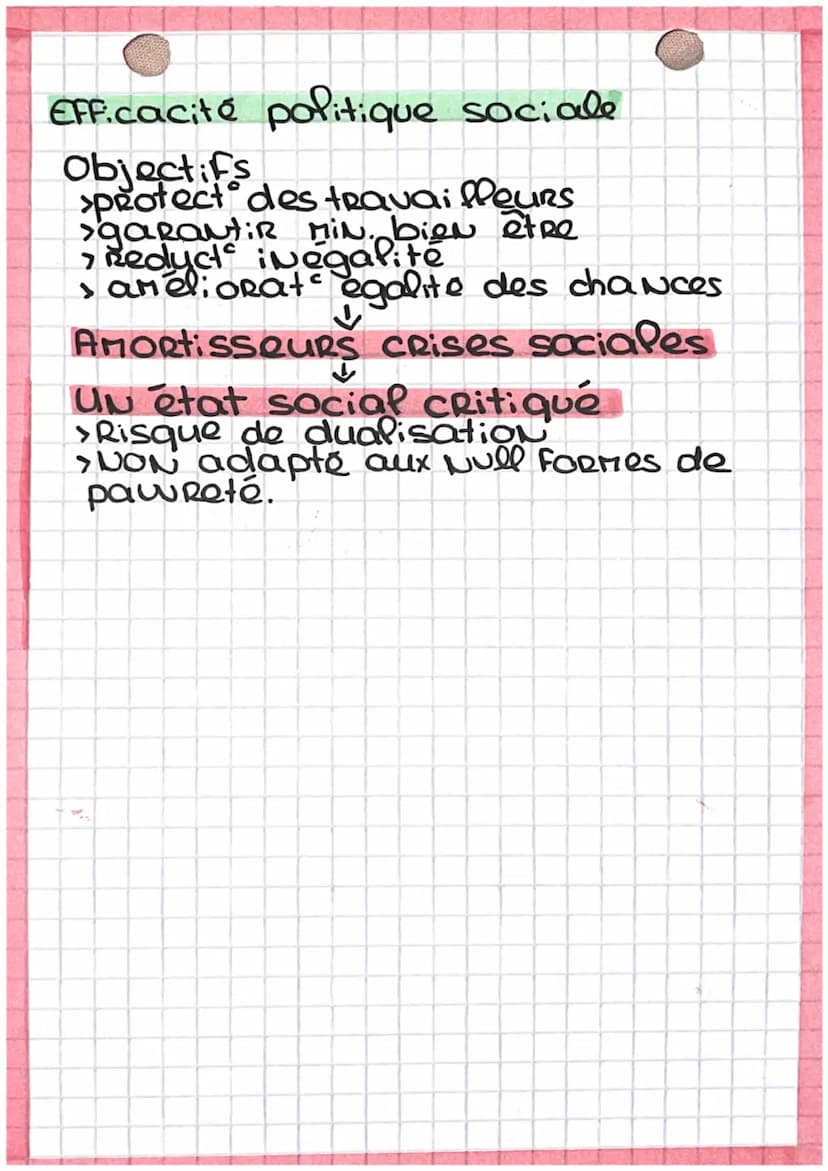 Efficacité politique sociale
Objectifs
>protect° des travailleurs
>garantir min. bien être
> Reduct° inégalité
> améliorat° égalité des chances
↓
Amortisseurs crises sociales
↓
Un état social critiqué
>Risque de dualisation
>NON adapté aux nvll formes de
pauvreté.